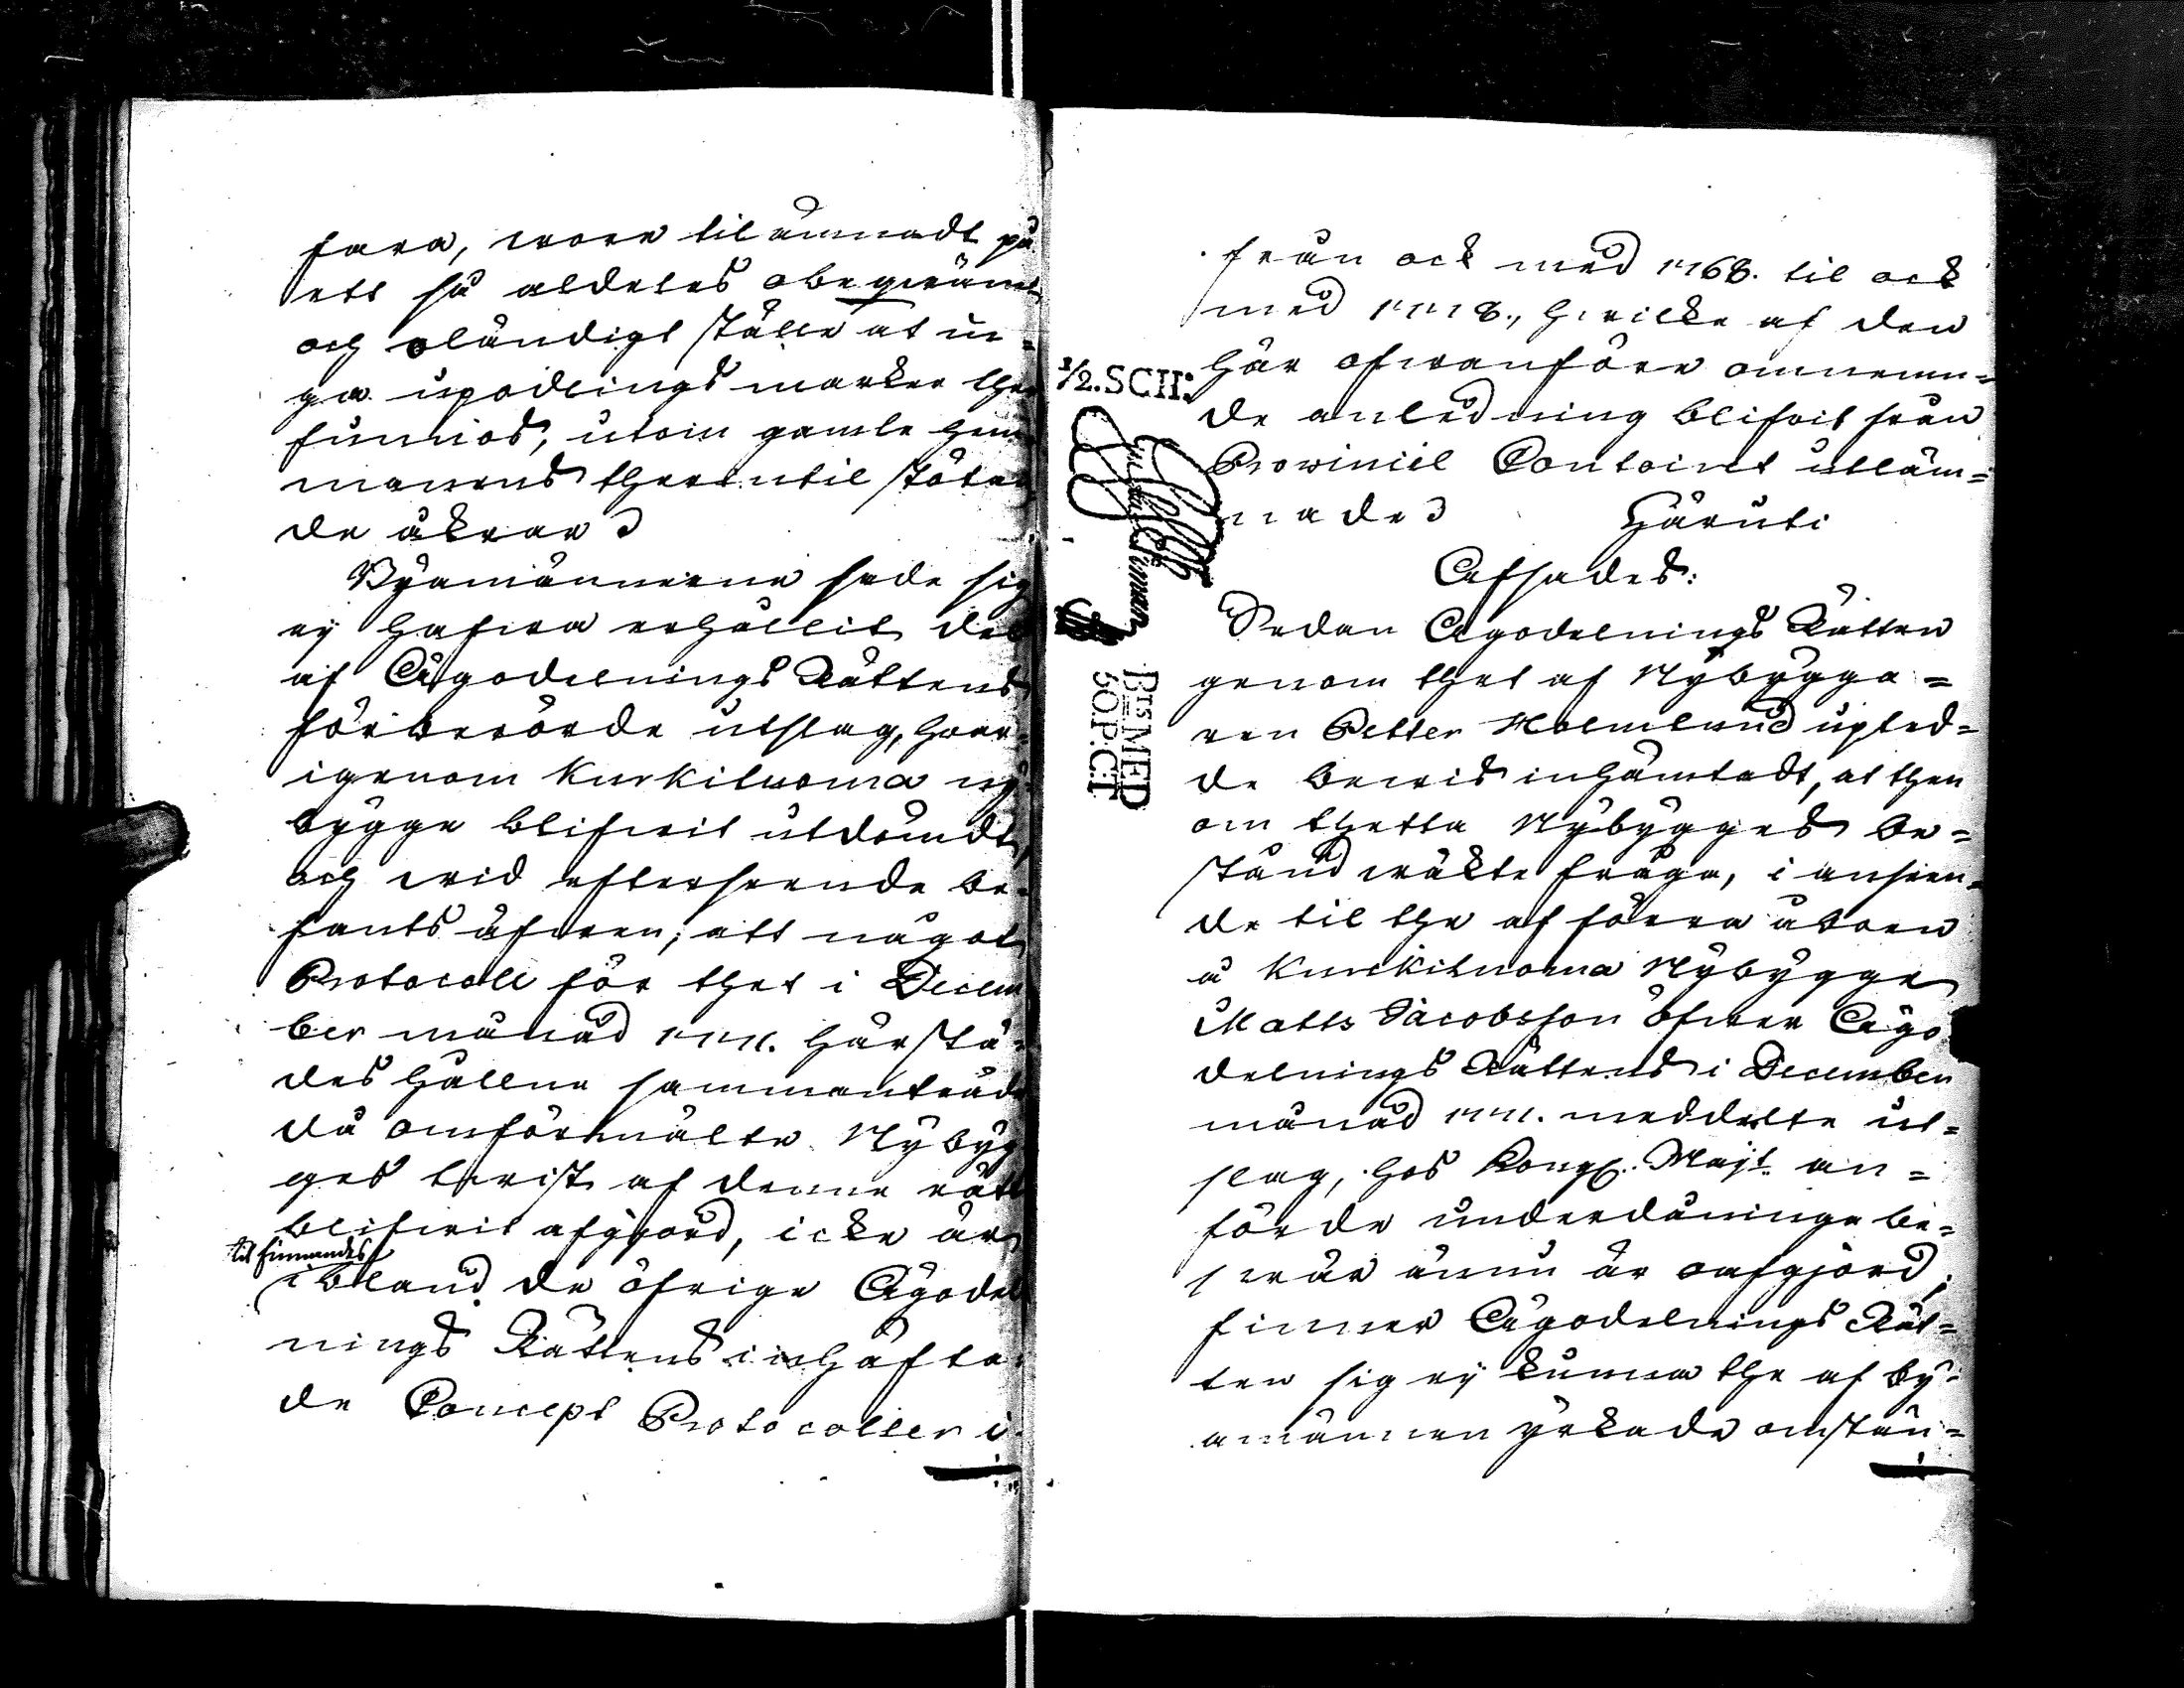 fara, wore tilämnadt på
ett så aldeles obegwäm
och oländigt ställe at in=
ga upodlings marker ther
funnios, utom gamle hem
manens therintil stötan
de åkrar
Byamännerne sade sig
ej hafwa erhållit del
af Ägodelnings Rättens
förberörde utslag, hwar=
igenom Kurkiluoma ny
bygge blifwit utdömdt,
och wid efterseende be=
fants äfwen, att något
Protocoll för thet i Decem
ber månad 1771. härstä=
des hållne sammanträde
då omförmälte Nybyg
ges twist af denne rätt
blifwit afgjord, icke är
til finnandes
ibland de öfrige Ägodel
nings Rättens inhäfta=
de Concept Protocoller i
från ock med 1768. til ock
med 1778., hwilke af den
här ofwanföre omnemn=
de anledning blifwit från
Prowiniel Contoiret utläm=
nade Häruti
Afsades:
Sedan Ägodelnings Rätten
genom thet af Nybygga=
ren Petter Holmlund upted=
de bewis inhämtadt, at then
om thetta Nybygges be=
stånd wäkte fråga, i anseen=
de til the af förra åboen
å Kurkiluoma Nybygge
Matts Jacobsson öfwer Ägo
delnings Rättens i December
månad 1771. meddelte ut=
slag, hos Kongl. Maijt an=
förde underdåninge be=
swär ännu är oafgjord;
finner Ägodelnings Rät=
ten sig ej kunna the af by=
amännen yrkade omstän=
1/2.SCH:
BtsMED
5O.P:CT